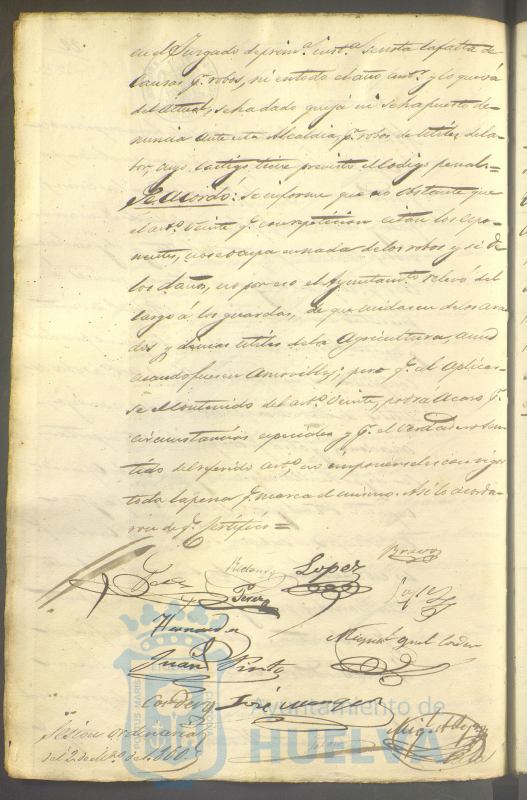 en el Juzgado de prim.ª inst.ª se nota la falta de
causas p.r robos, ni en todo el año ant.r y lo que vá
del actual, se ha dado queja ni se ha puesto de-
nuncia ante esta Alcaldia, p.r robos de utiles de la-
bor, cuyo castigo tiene previsto el Codigo penal=
Se acordó: Se informe que no obstante que
el art.º veinte q.e con repeticion citan los espo-
nentes, no se ocupa en nada de los robos y si de
los daños, no por eso el Ayuntam.to relevó del
cargo á los guardas, de que cuidasen de los ara-
dos y demas utiles de la Agricultura, aun
cuando fuesen amovibles; pero q.e al aplicar-
se el contenido del art.º veinte, podra acaso p.r
circunstancias especiales y p.r el verdadero sen-
tido del referido art.º, no imponerseles con rigor
toda la pena q.e marca el mismo. Asi lo acorda-
ron de q.e certifico=
Bravo
Lopez
Perez
Hernandez
Miguel
Juan Pinto
Cordero
José
Sesion ordinaria
del 2 de
Ayuntamiento de
HUELVA
PORTUS MARIS